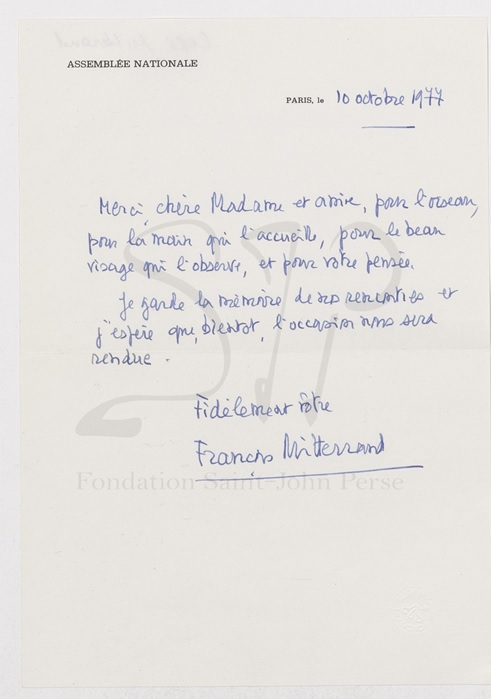 ASSEMBLÉE NATIONALE
PARIS, le 10 octobre 1977
Merci, chère Madame et amie, pour l'oiseau,
pour la main qui l'accueille, pour le beau
visage qui l'observe, et pour votre pensée.
Je garde la mémoire de nos rencontres et
j'espère que, bientôt, l'occasion nous sera
rendue.
Fidèlement vôtre
François Mitterrand
SJP
Fondation Saint-John Perse